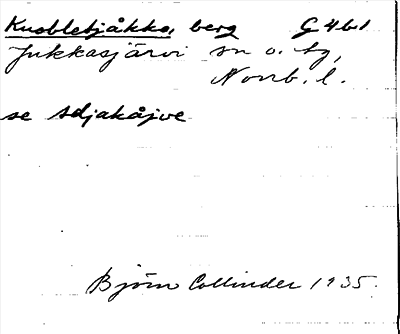 Kuobletjåkko, berg G4b1
Jukkasjärvi sn o. tg,
Norrb. l.
se Adjakåjve
Björn Collinder 1935.